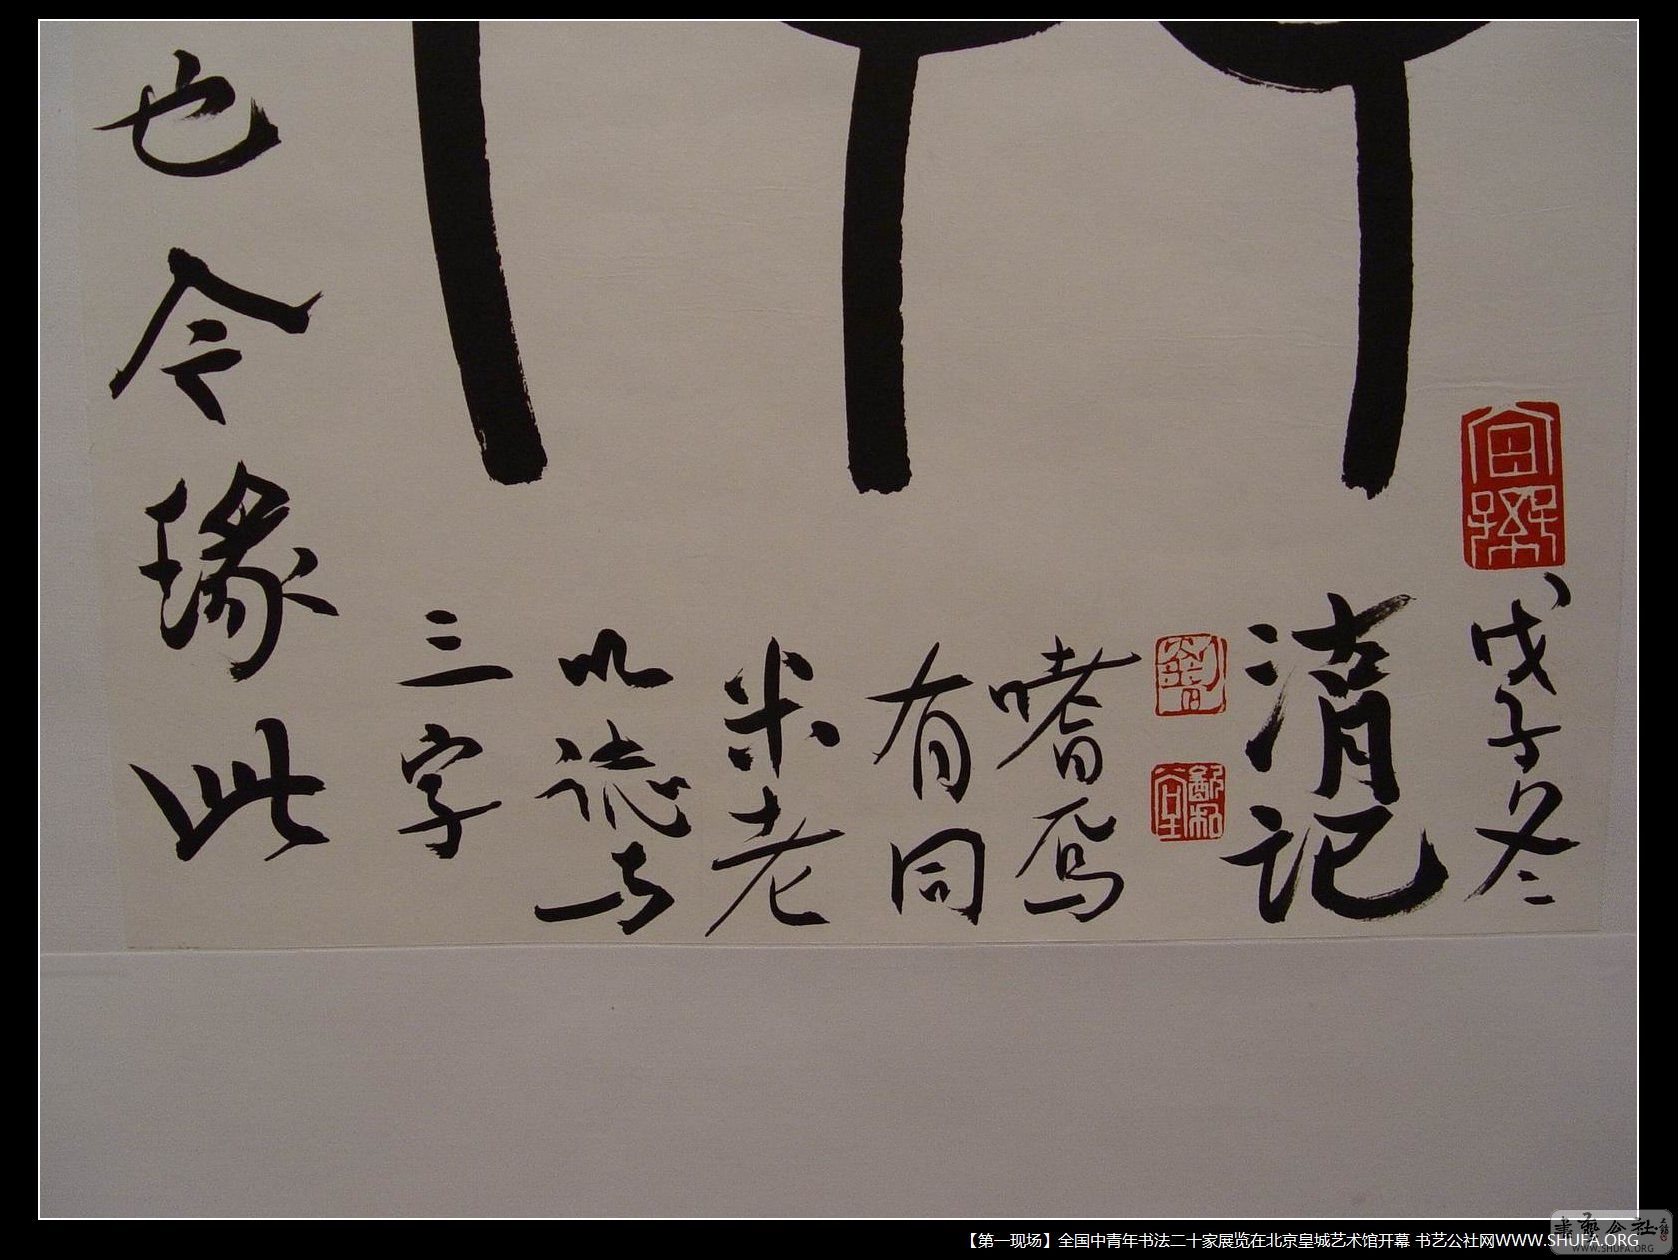 也令瑑此
三字
以誌与
米老
有同
嗜焉
清记
戊子冬
【第一现场】全国中青年书法二十家展览在北京皇城艺术馆开幕 书艺公社网WWW.SHUFA.ORG
書藝公社
WWW.SHUFA.ORG